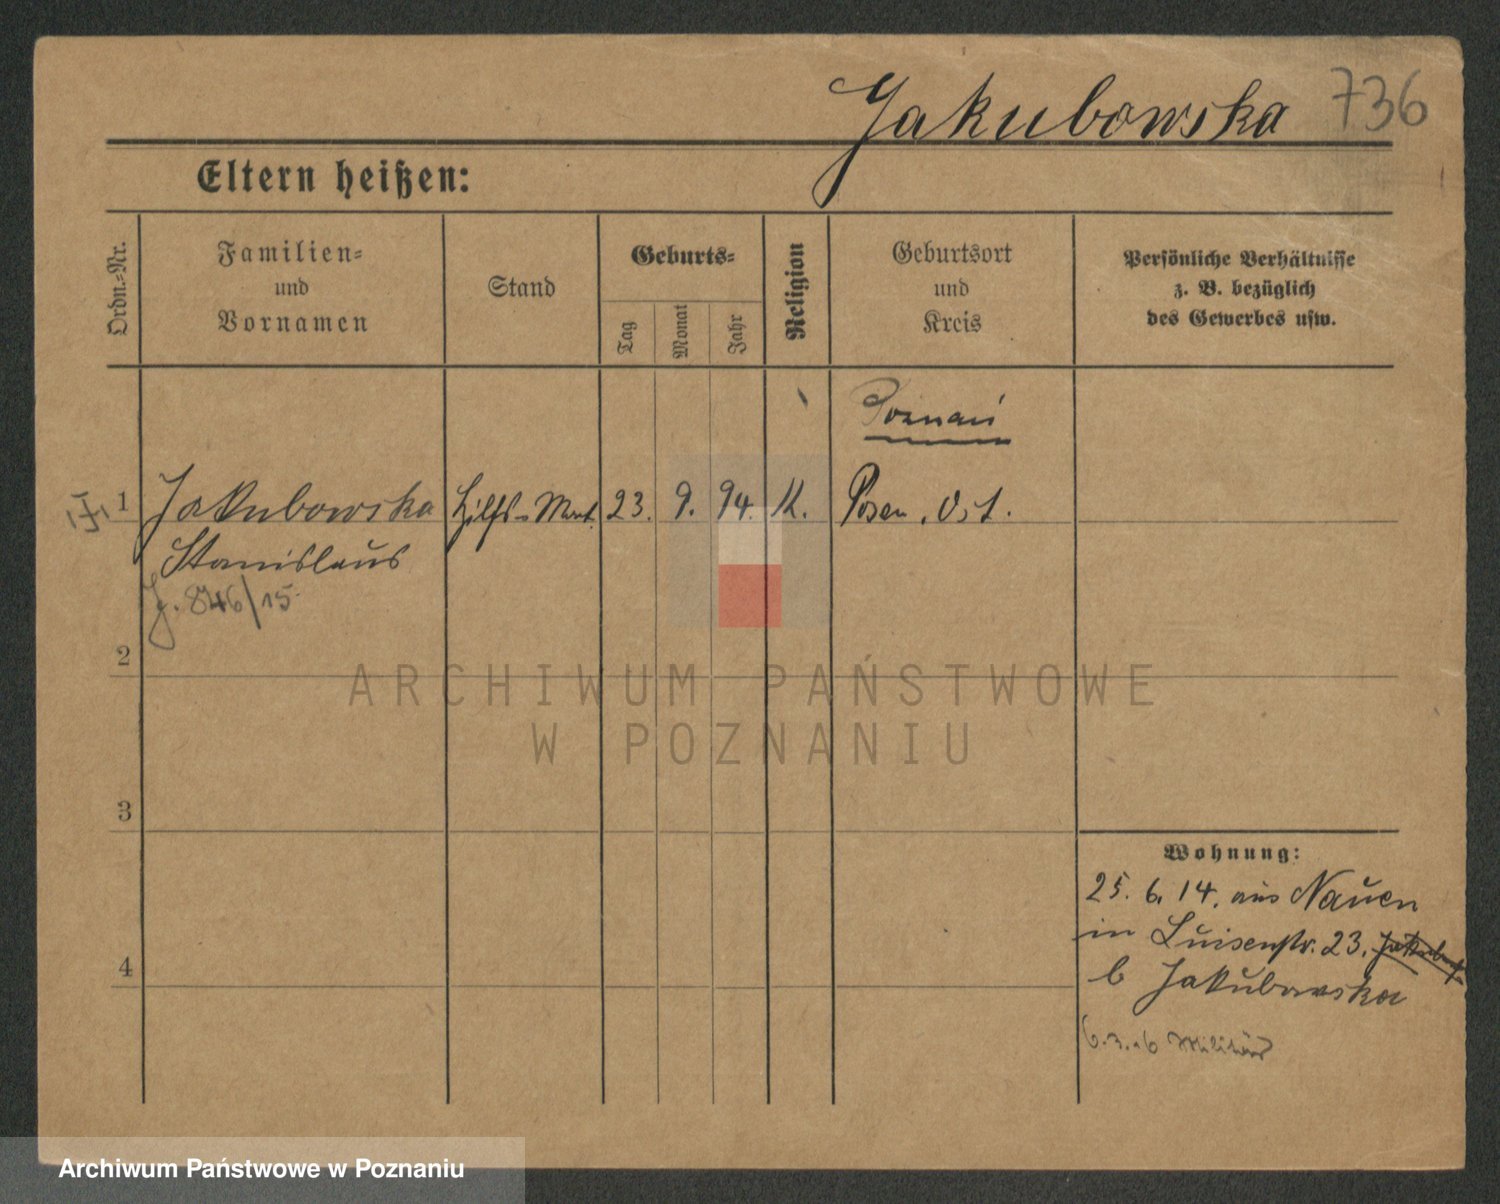 Jakubowska 736
Eltern heißen:
Ordn.=Nr.
Familien=
und
Vornamen
Stand
Geburts=
Tag
Monat
Jahr
Religion
Geburtsort
und
Kreis
Persönliche Verhältnisse
z. B. bezüglich
des Gewerbes usw.
Poznań
1 Jakubowska Hilfs= 23. 9. 94. K. Posen. Ost.
Stanislaus
J. 846/15
2
ARCHIWUM PAŃSTWOWE
W POZNANIU
3
Wohnung:
25. 6. 14. aus Nauen
in Luisenstr. 23.
4
b Jakubowska
Militär
Archiwum Państwowe w Poznaniu